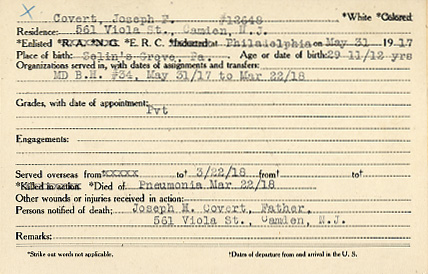 Covert, Joseph F. #12648 *White *Colored
Residence: 561 Viola St., Camien, N.J.
*Enlisted *R.A. *N.G. *E.R.C. *Inducted at Philadelphia on May 31 1917
Place of birth: Selin's Grove, Pa. Age or date of birth: 29 11/12 yrs
Organizations served in, with dates of assignments and transfers:
MD B.H. #34, May 31/17 to Mar 22/18
Grades, with date of appointment:
Pvt
Engagements:
Served overseas from† xxxxx to† 3/22/18 from† to†
*Killed in action *Died of Pneumonia Mar 22/18
Other wounds or injuries received in action:
Persons notified of death; Joseph H. Covert, Father,
561 Viola St., Camien, N.J.
Remarks:
*Strike out words not applicable. †Dates of departure from and arrival in the U. S.